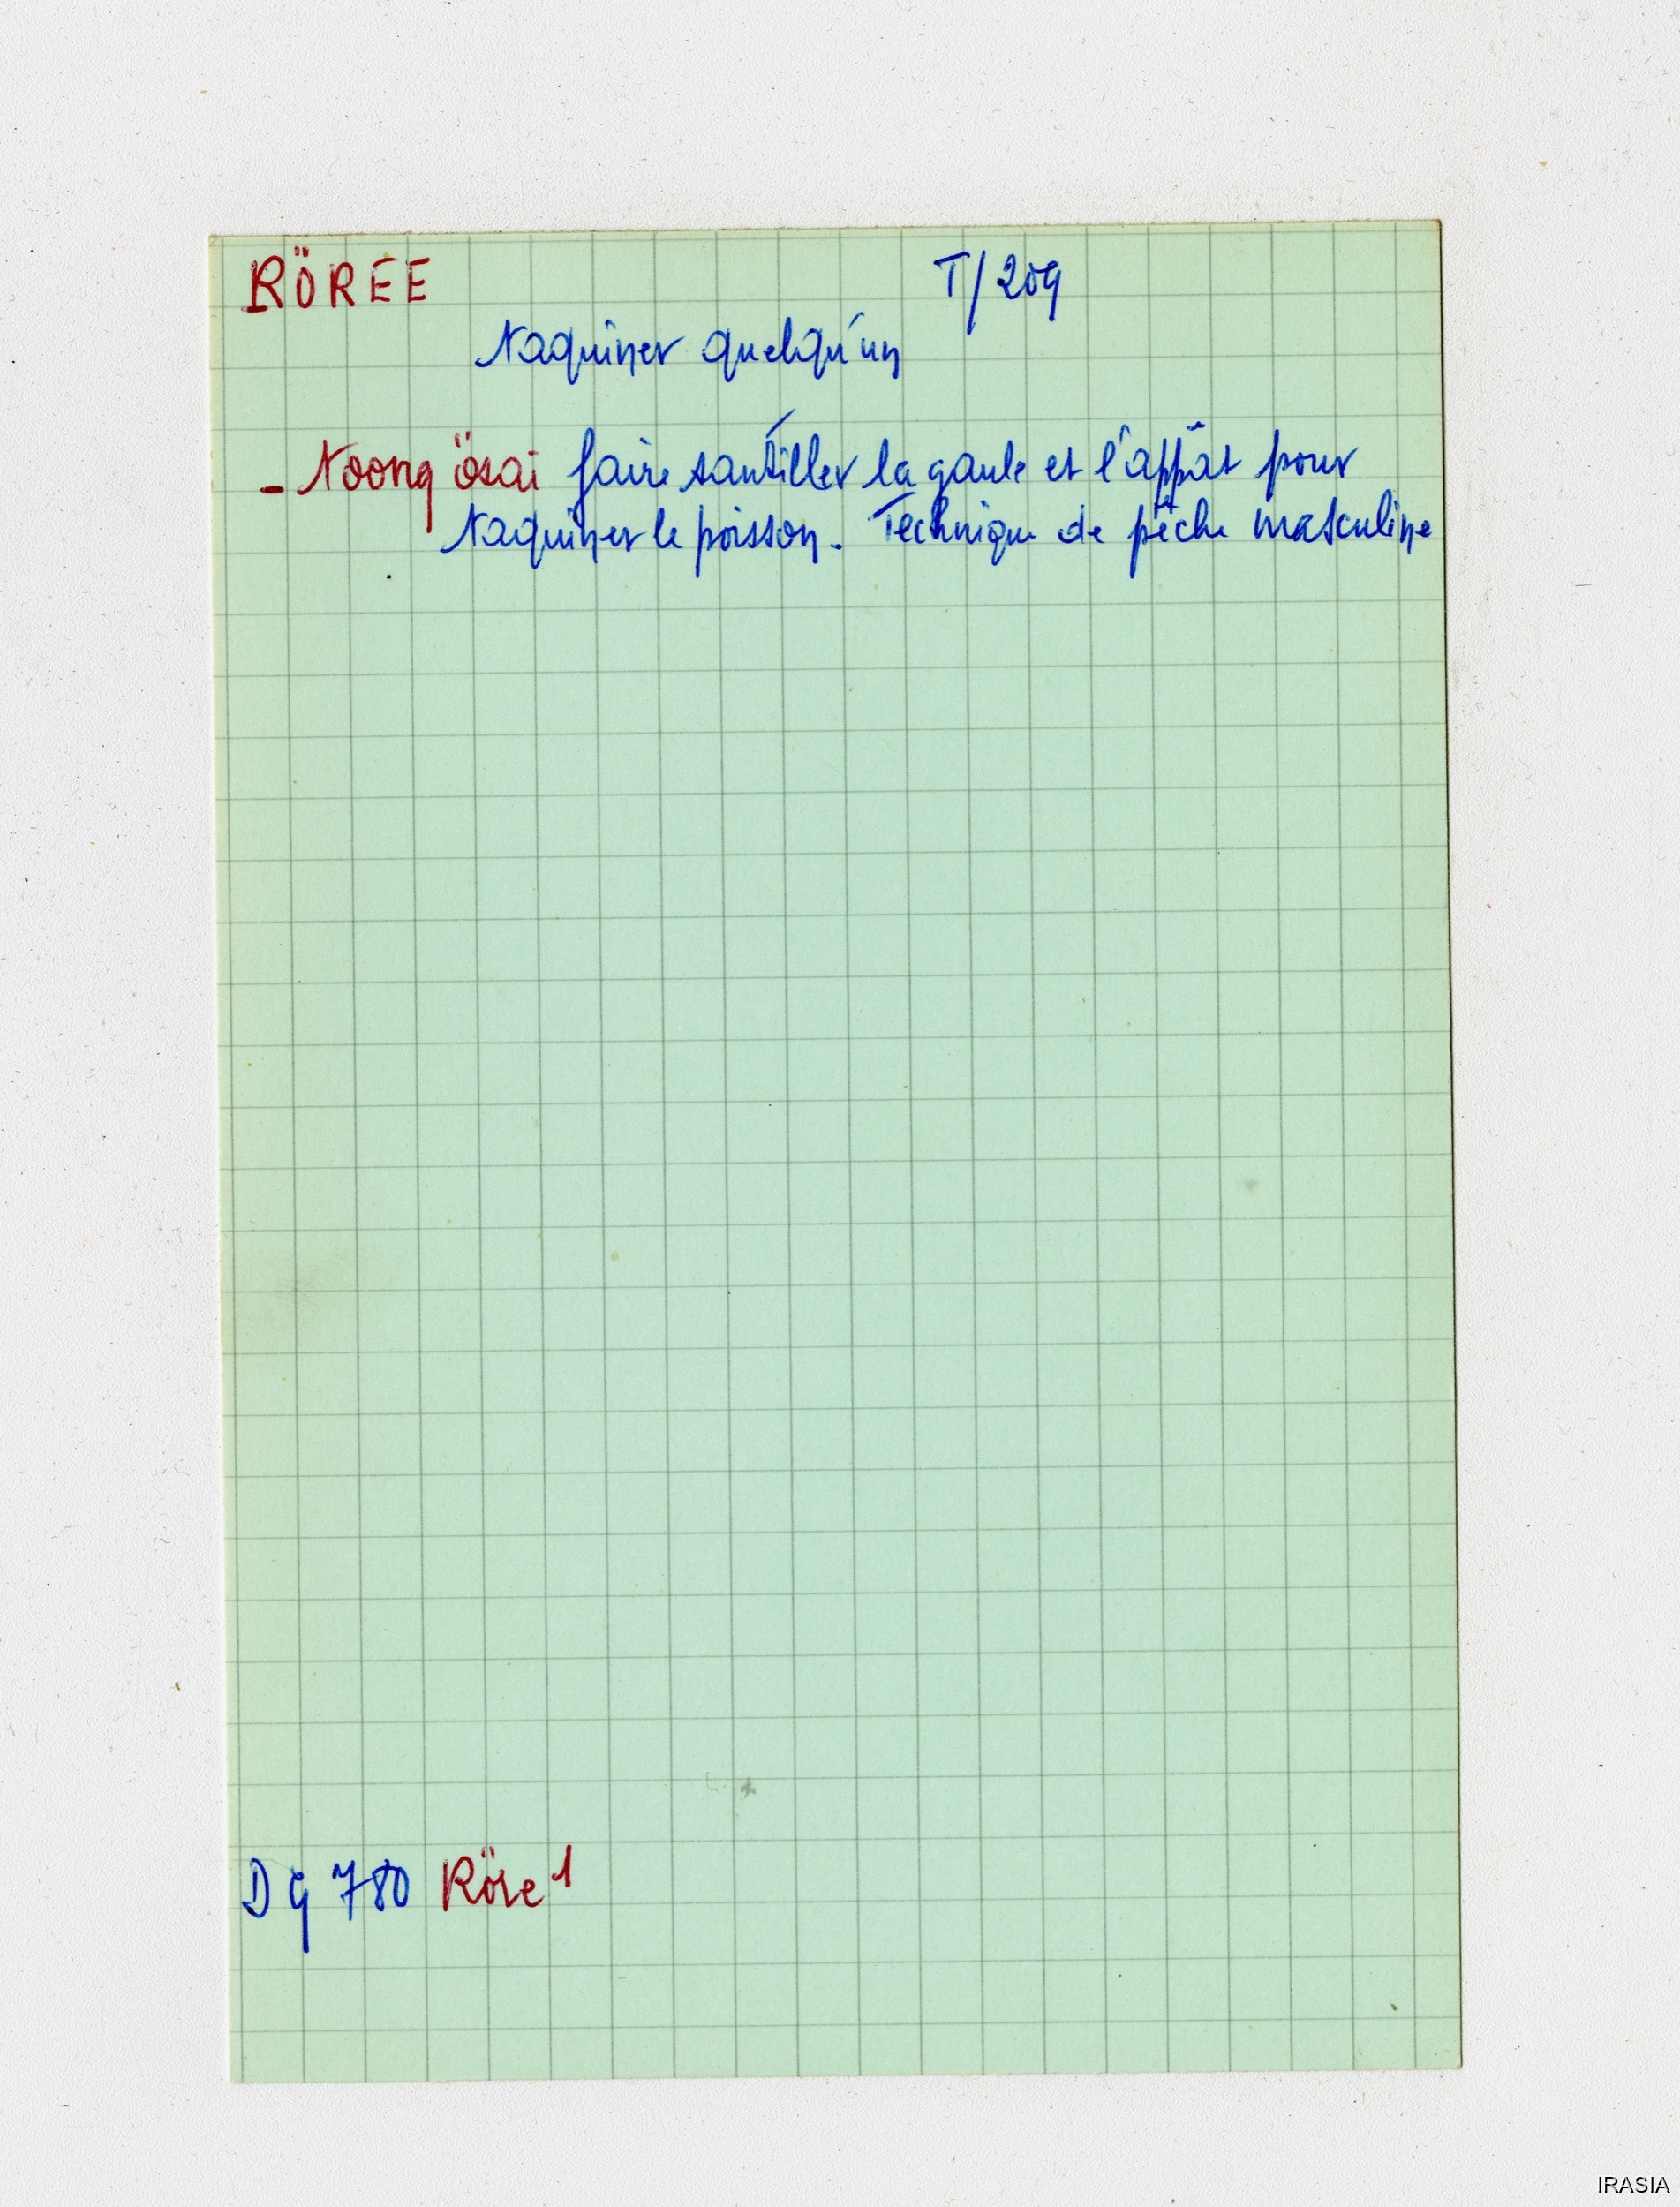 RÖREE T/209
Taquiner quelqu'un
- Toong ösai faire sautiller la gaule et l'appât pour
taquiner le poisson. Technique de pêche masculine
D g 780 Röre 1
IRASIA